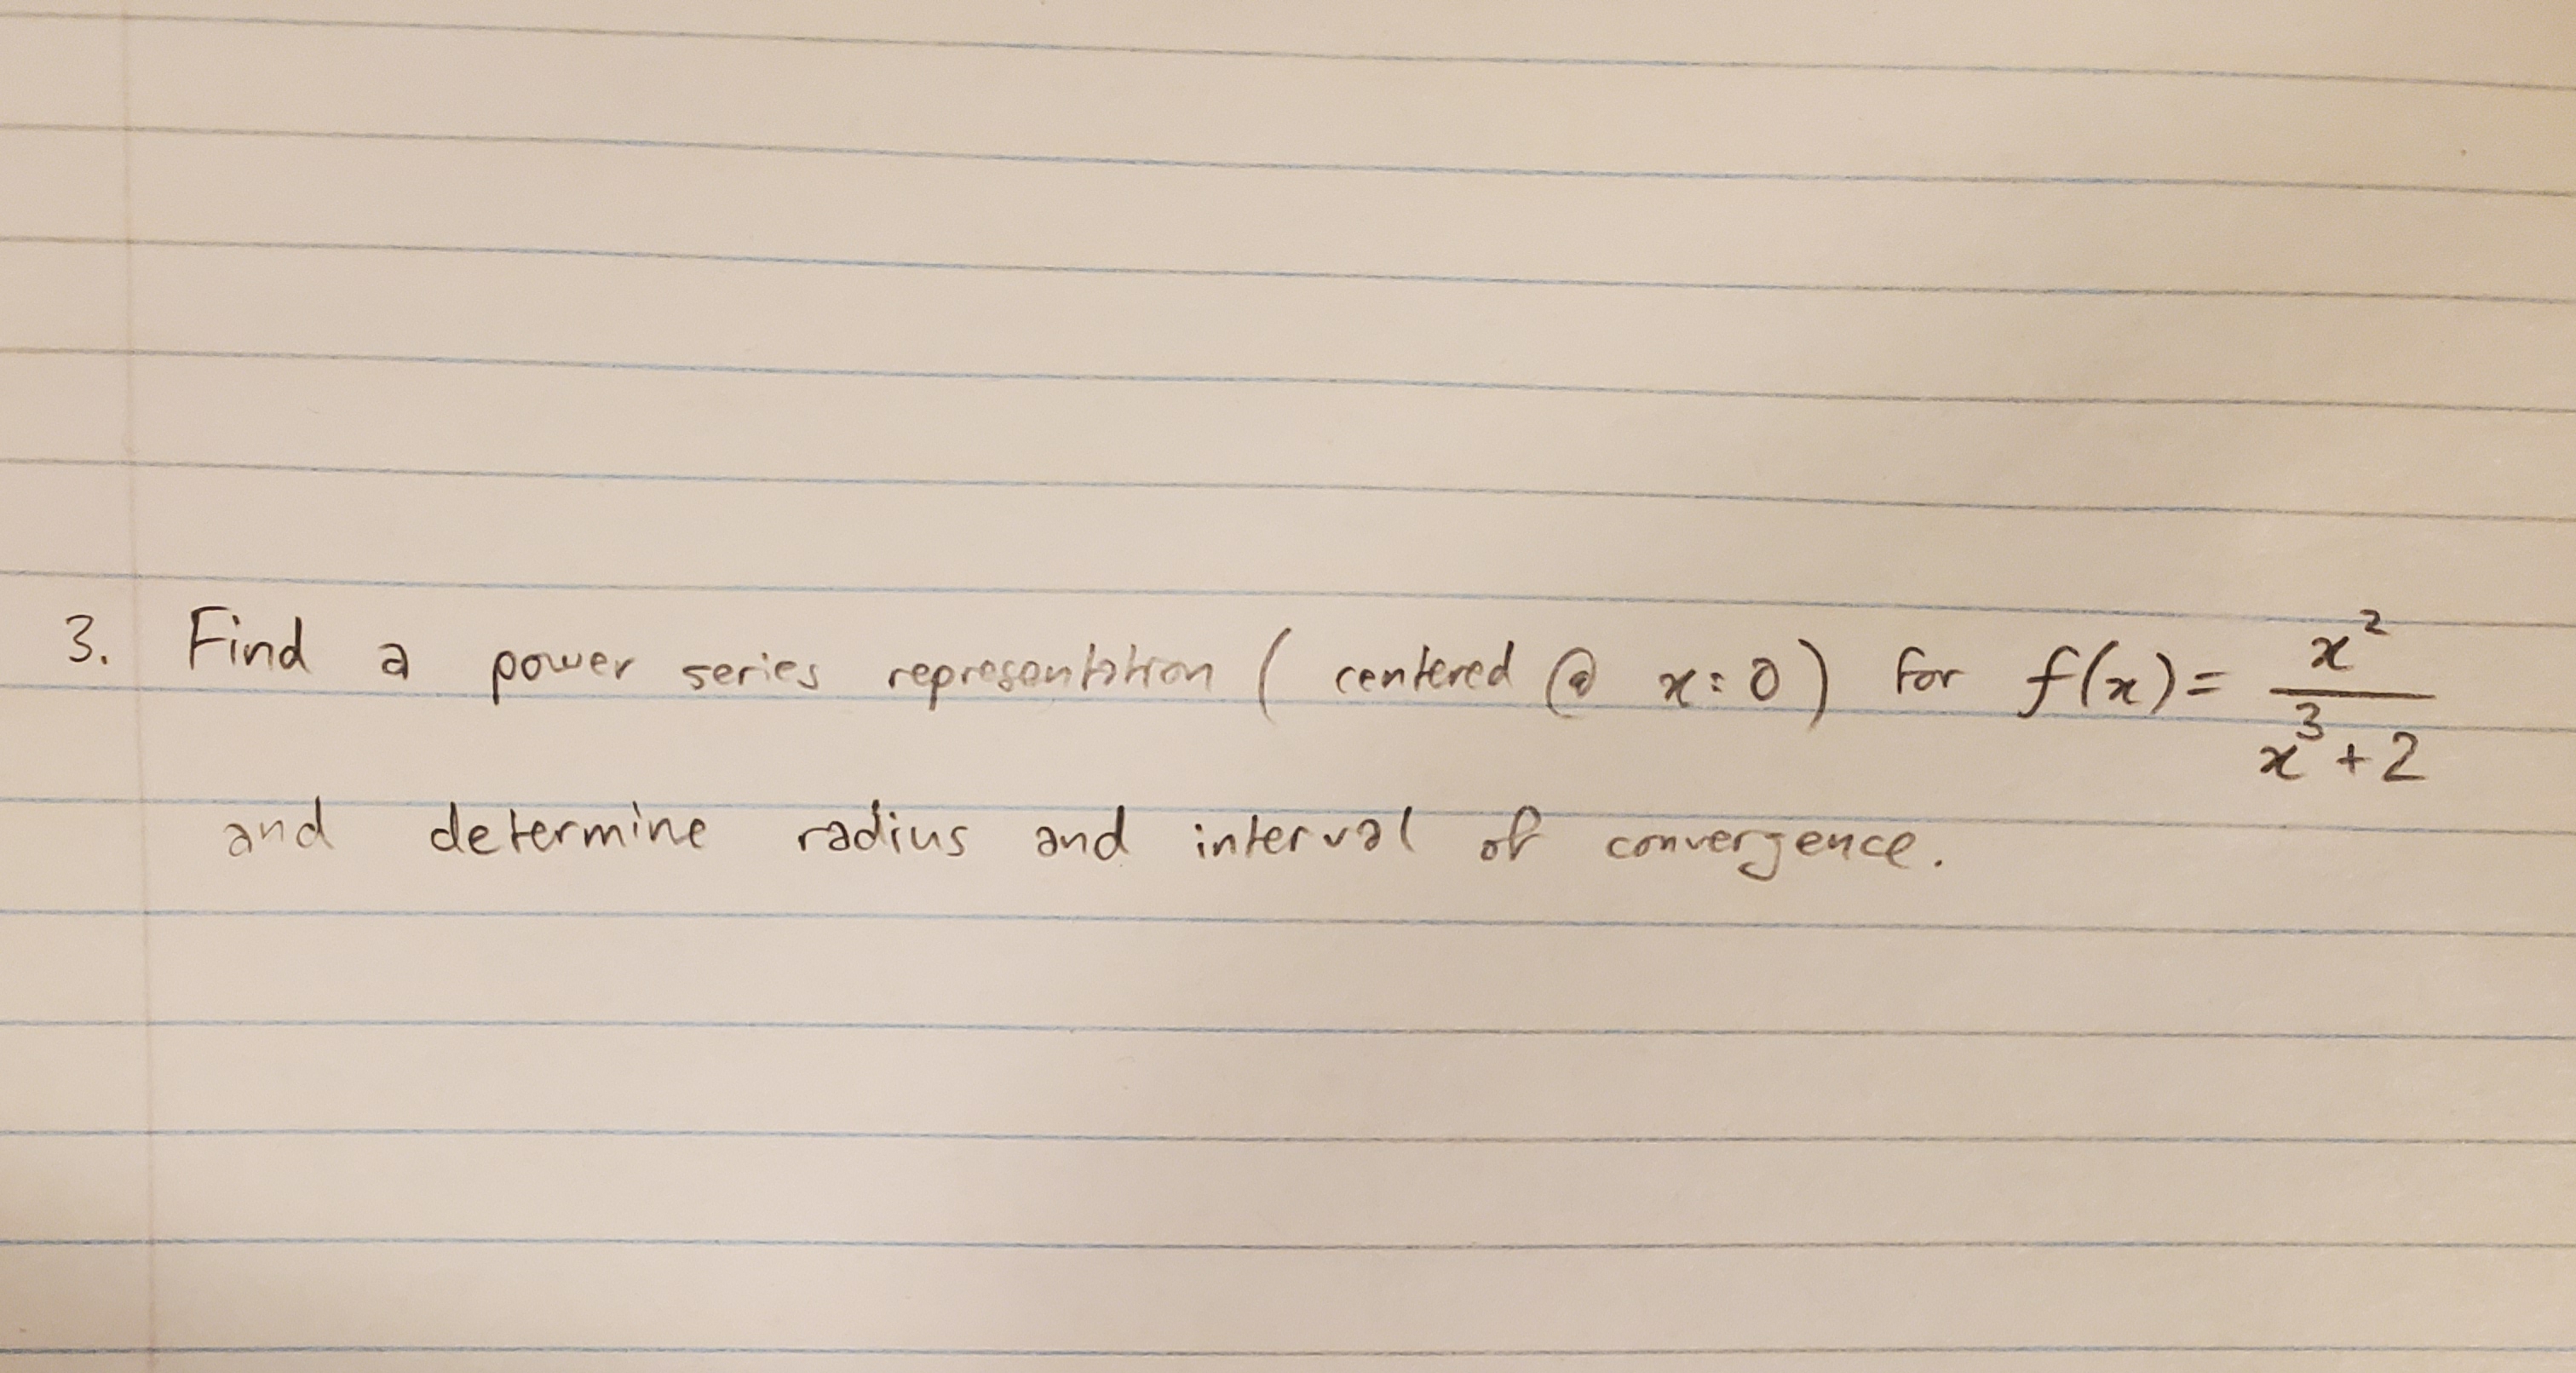 3. Find a power series representation ( centered @ x=0) for f(x)= x²/(x³+2)
and determine radius and interval of convergence.